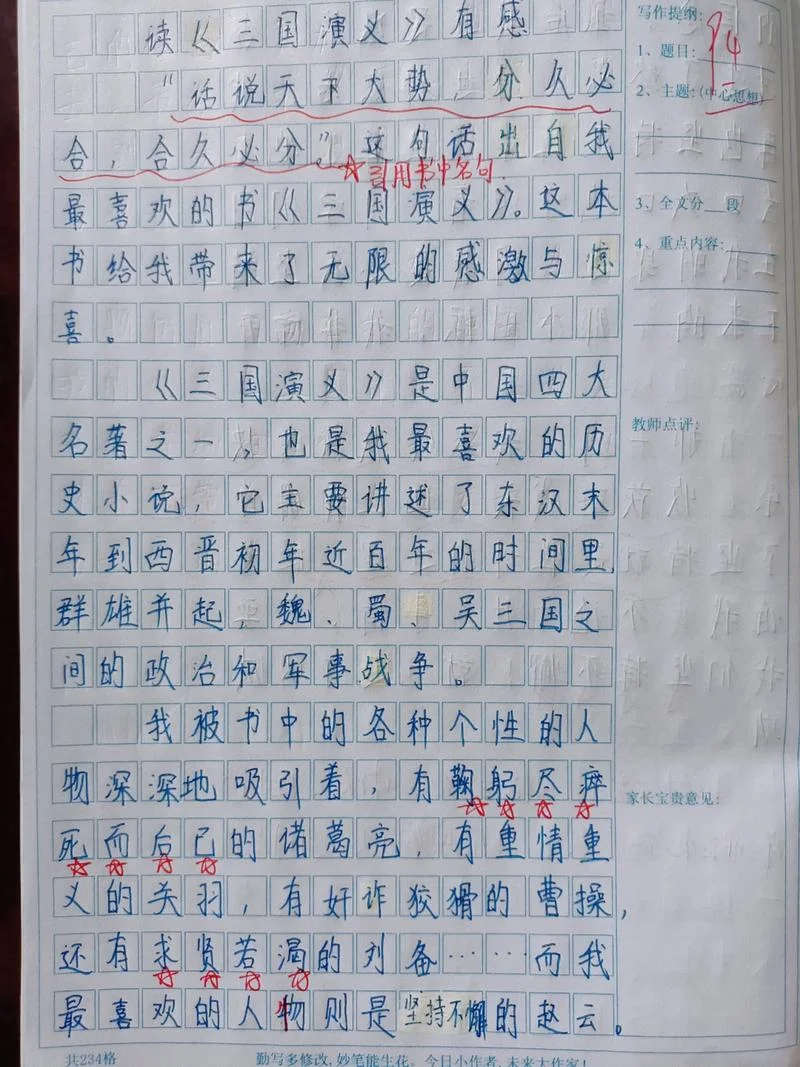 读《三国演义》有感
“话说天下大势,分久必
合,合久必分”。这句话出自我
☆引用书中名句
最喜欢的书《三国演义》。这本
书给我带来了无限的感激与惊
喜。
《三国演义》是中国四大
名著之一,也是我最喜欢的历
史小说,它主要讲述了东汉末
年到西晋初年近百年的时间里,
群雄并起,魏、蜀、吴三国之
间的政治和军事战争。
我被书中的各种个性的人
物深深地吸引着,有鞠躬尽瘁
死而后已的诸葛亮,有重情重
义的关羽,有奸诈狡猾的曹操,
还有求贤若渴的刘备……而我
最喜欢的人物则是坚持不懈的赵云。
写作提纲:
94
1、题目:
2、主题:(中心思想)
3、全文分__段
4、重点内容:
教师点评:
家长宝贵意见:
共234格
勤写多修改,妙笔能生花。今日小作者,未来大作家!